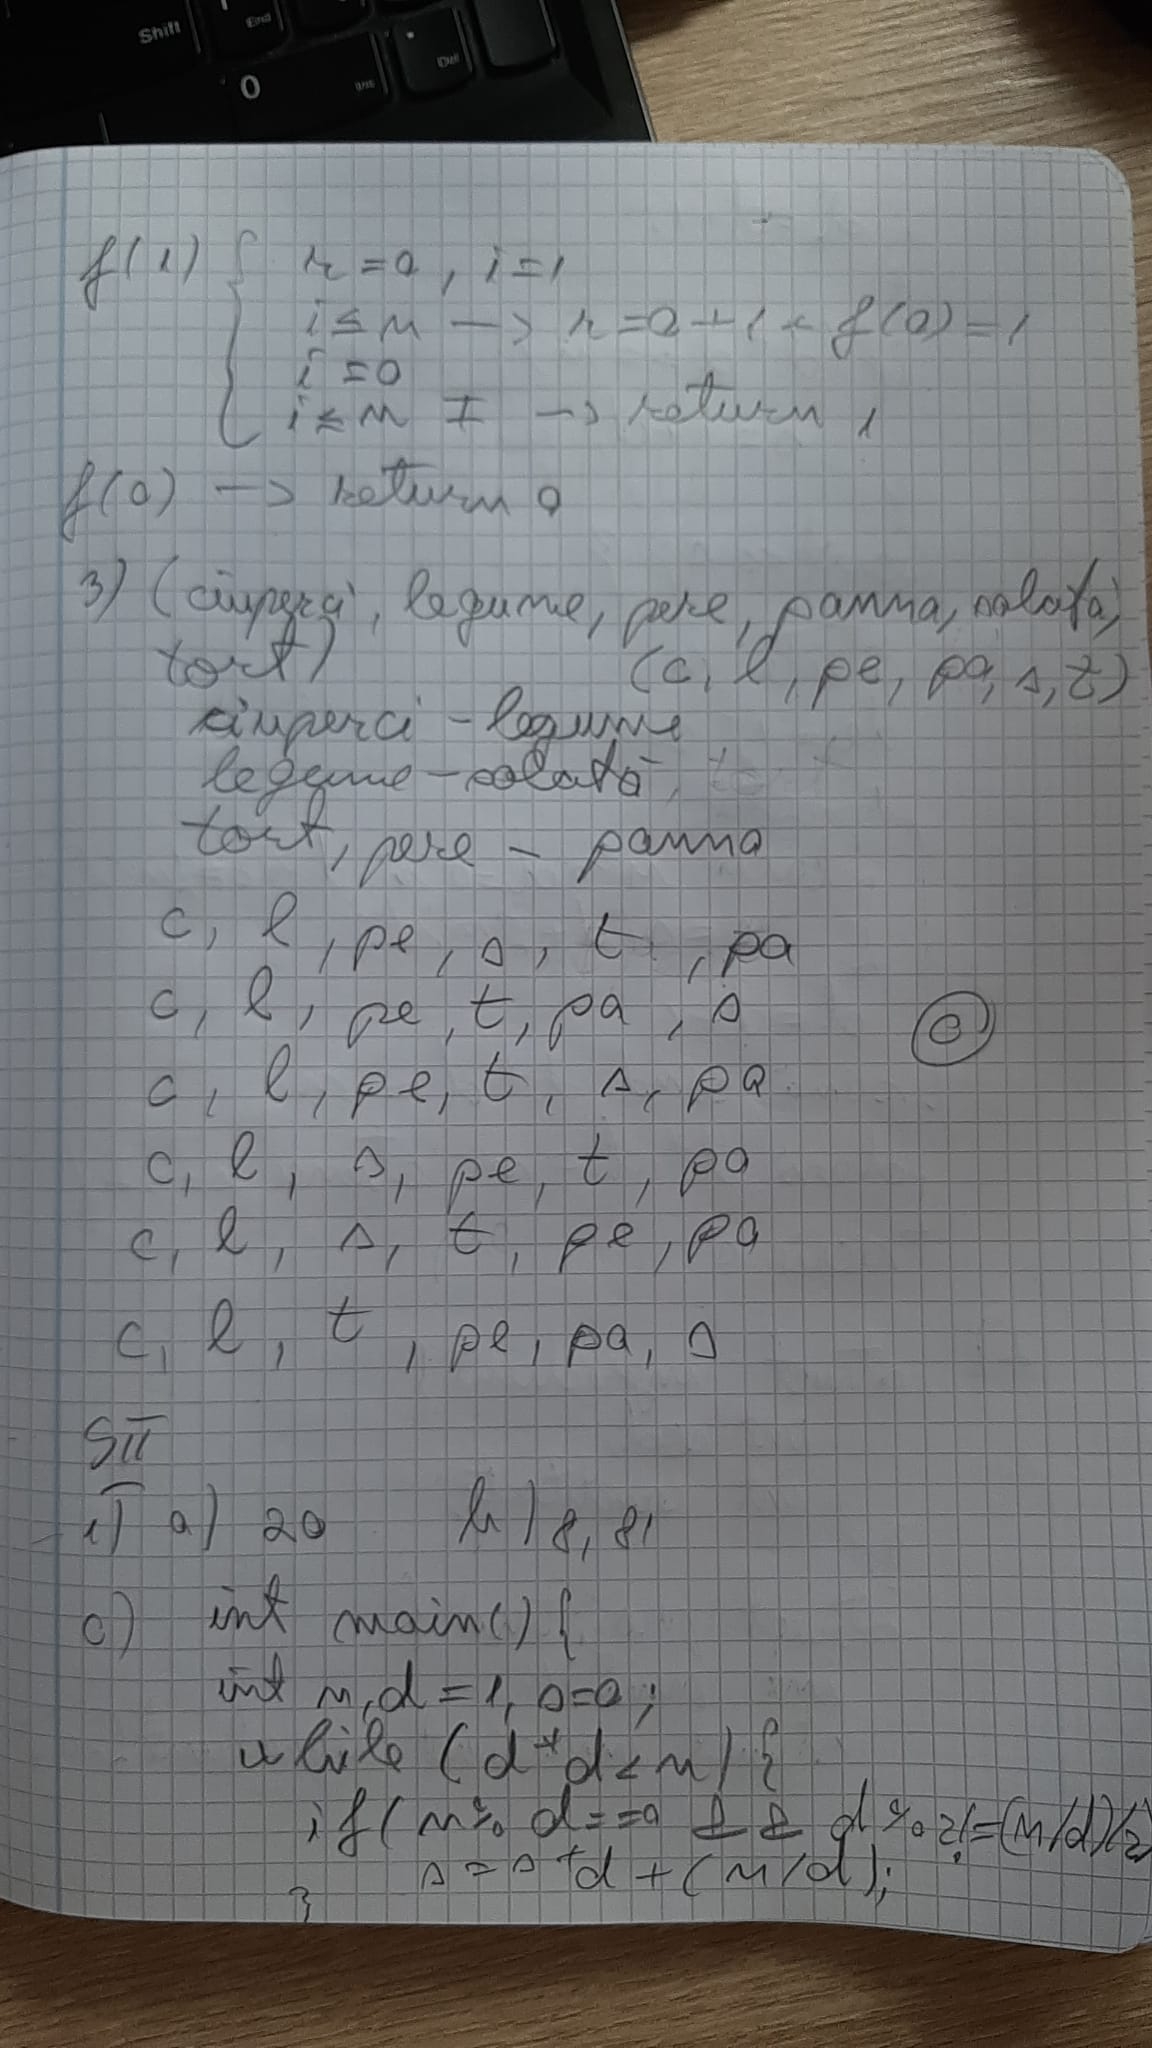 Shift
End
0
Ins
Del
f(1) { r=0, i=1
i≤n —> r=0+1+f(0)=1
i=0
i≤n F —> return 1
f(0) —> return 0
3) (ciuperci, legume, pere, panna, salată,
tort) (c, l, pe, pa, s, t)
ciuperci - legume
legume - salată
tort, pere - panna
c, l, pe, s, t, pa
c, l, pe, t, pa, s
c
c, l, pe, t, s, pa
c, l, s, pe, t, pa
c, l, s, t, pe, pa
c, l, t, pe, pa, s
SII
1) a) 20 b) 8, 81
c) int main() {
int n, d=1, s=0;
while (d*d<n) {
if(n% d==0 && d%2!=(n/d)%2)
s=s+d+(n/d);
}